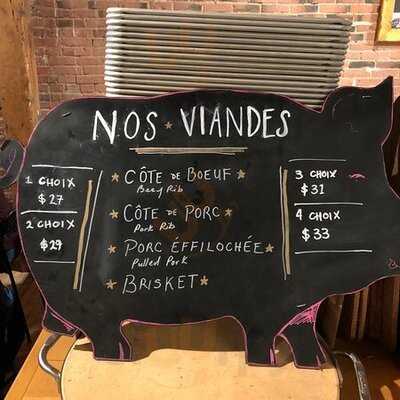 NOS VIANDES
1 CHOIX
$27
2 CHOIX
$29
CÔTE DE BOEUF
Beef Rib
CÔTE DE PORC
Pork Rib
PORC ÉFFILOCHÉE
Pulled Pork
BRISKET
3 CHOIX
$31
4 CHOIX
$33